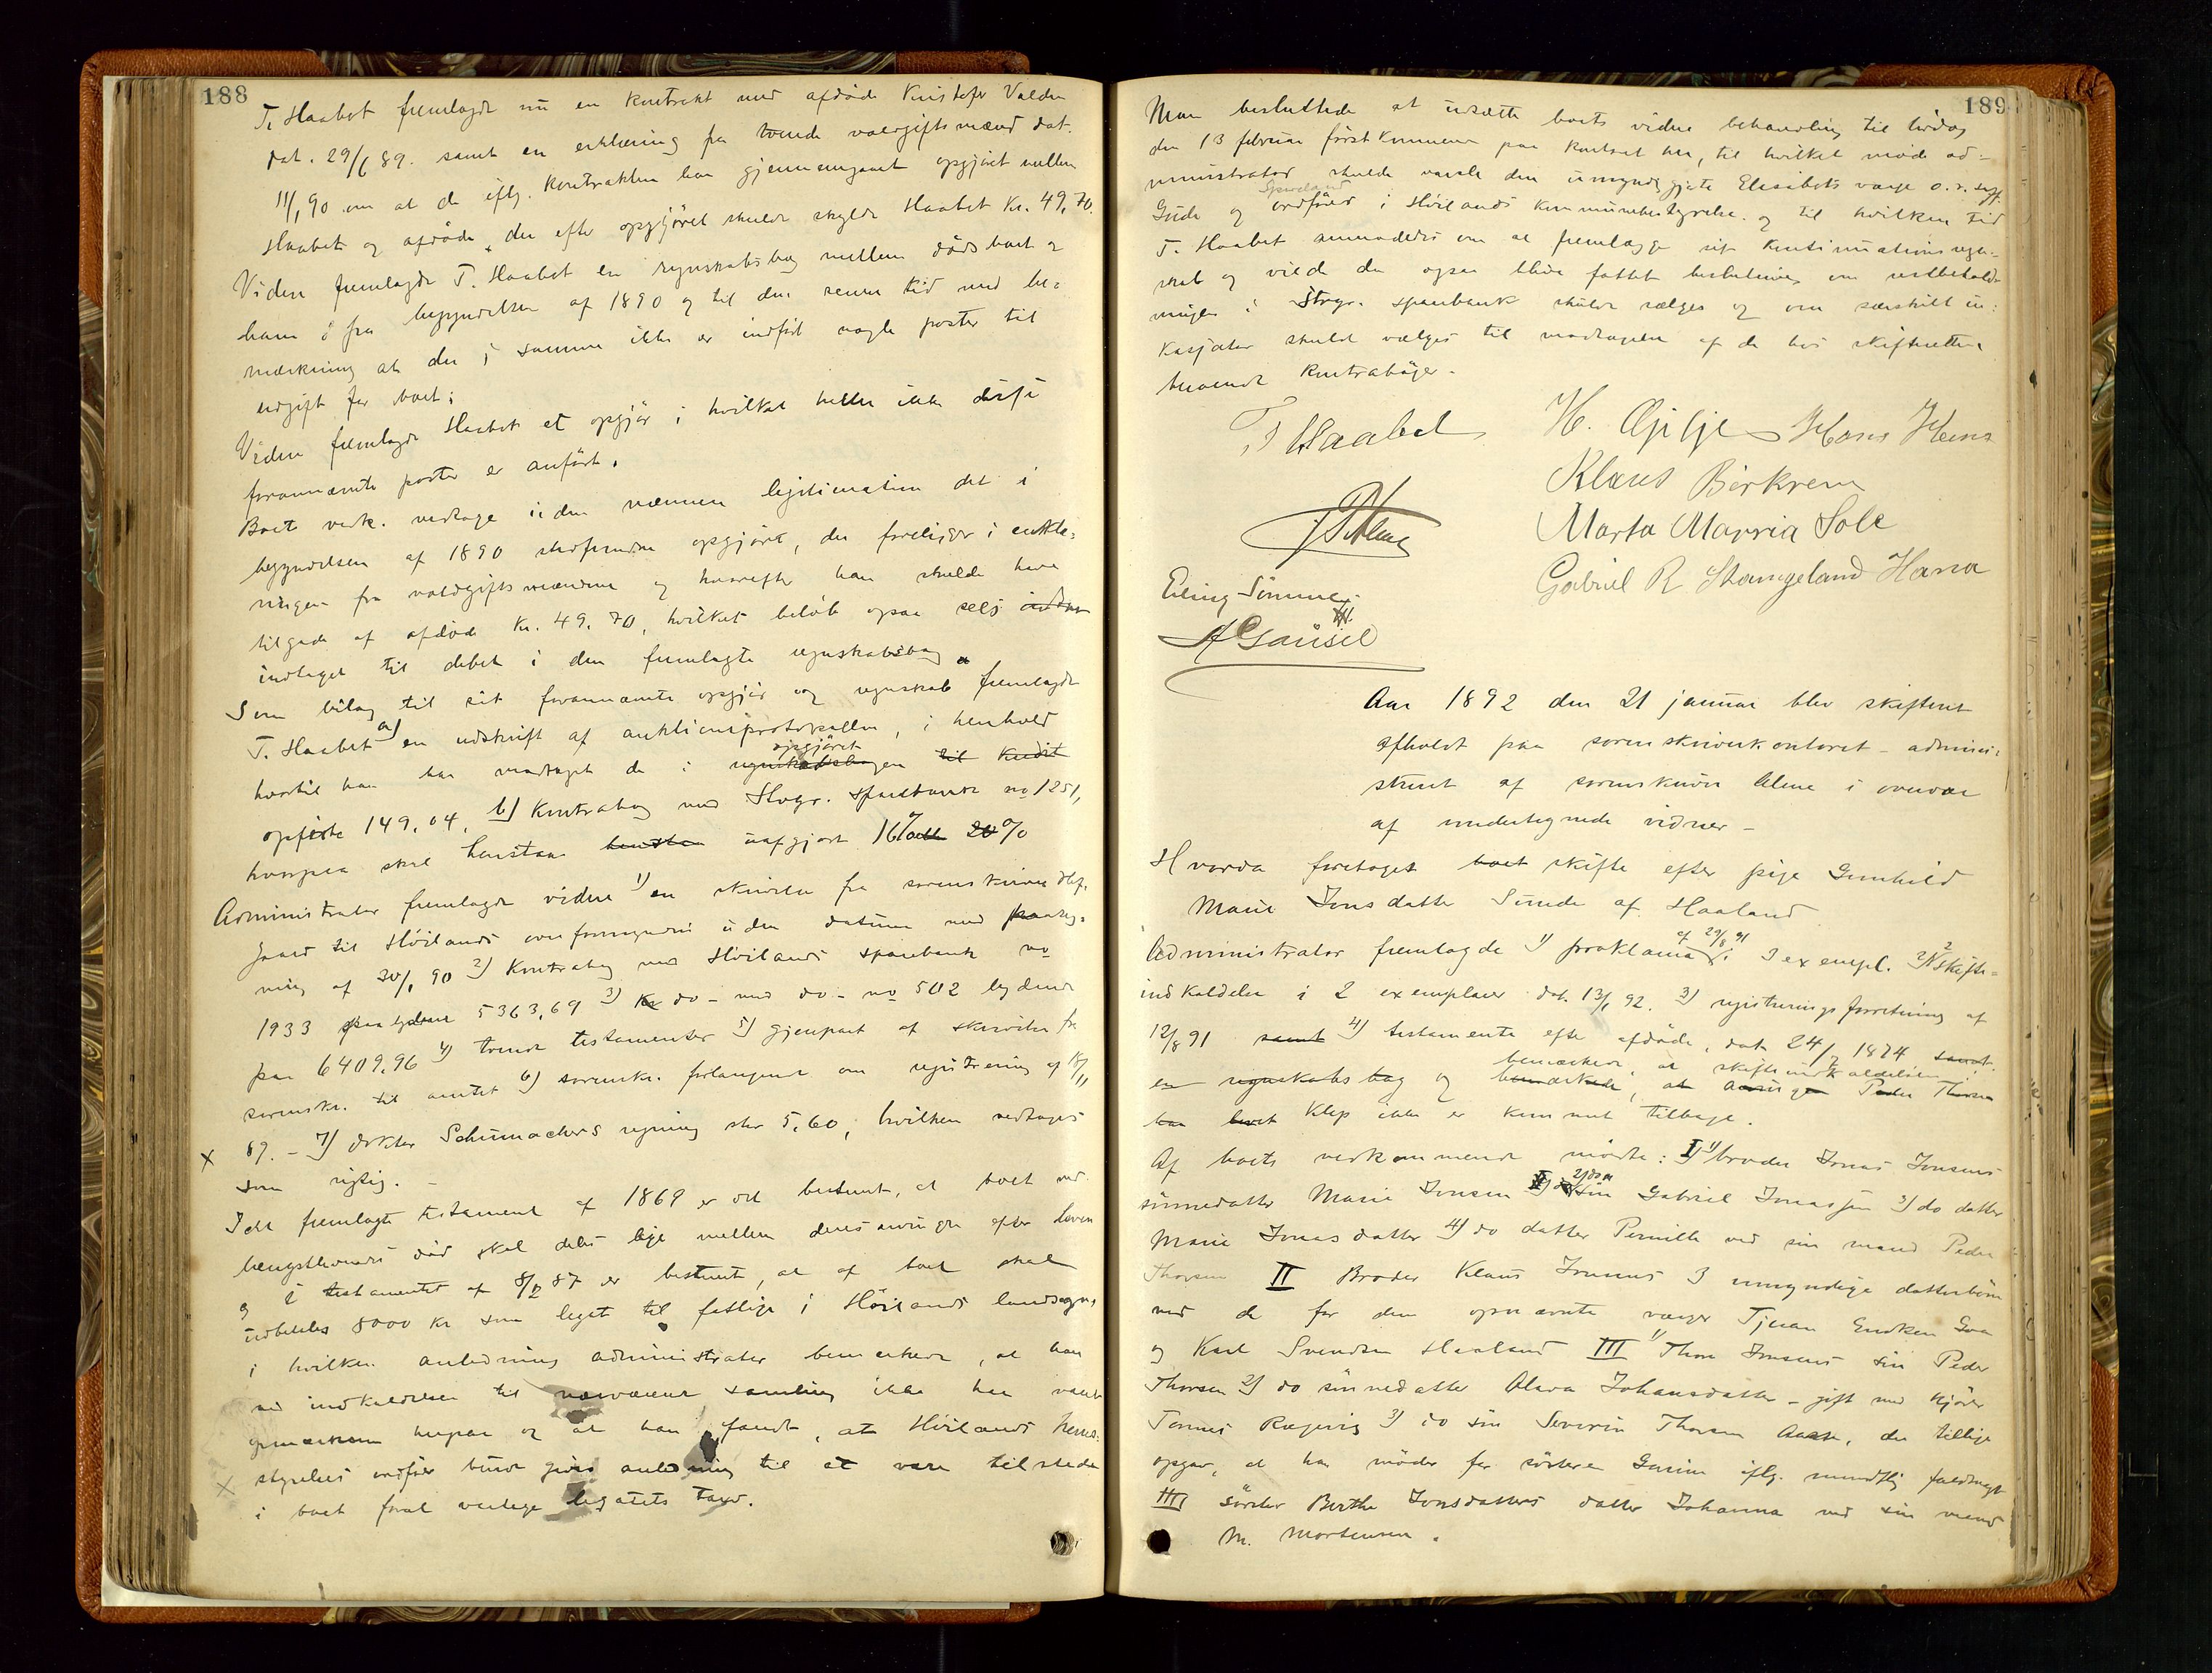 188
T. Haabet fremlagde nu en kontrakt med afdøde Kristofer Valden
dat. 29/6 89. samt en erklæring fra tvende voldgiftsmænd dat.
11/1 90 om at de iflg. kontrakten har gjennemgaaet opgjøret mellem
Haabet og afdøde, der efter opgjøret skulde skylde Haabet Kr. 49,70.
Videre fremlagde T. Haabet en regnskabsbog mellem dødsboet og
ham fra begyndelsen af 1890 og til den senere tid med be-
mærkning at der i samme ikke er indført nogle poster til
udgift for boet.
Videre fremlagde Haabet et opgjør i hvilket heller ikke disse
forannævnte poster er anført.
Boet vedk. vedtage uden nærmere legitimation det i
begyndelsen af 1890 stedfundne opgjøret, der foreligger i erklæ-
ringen fra voldgiftsmændene og hvorefter han skulde have
tilgode af afdøde Kr. 49,70, hvilket beløb ogsaa sees
indtaget til debet i den fremlagte regnskabsbog
Som bilag til sit forannævnte opgjør og regnskab fremlagde
T. Haabet a) en udskrift af auktionsprotokollen, i henhold
hvortil han har modtaget de i opgjøret regnskabsbogen til kredit
opførte 149,04, b) Kontrabog med Stvgr. sparebank no 1251,
hvorpaa skal henstaa uafgjort 16%
Administrator fremlagde videre 1) en skrivelse fra sorenskriver
til Høilands overformynderi uden datum med paateg-
ning af 20/1 90 2) Kontrabog med Høilands sparebank no
1933 paalydende 5363,69 3) do - med do - no 502 lydende
paa 6409,96 4) trende testamenter 5) gjenpart af skrivelse fra
sorenskr. til amtet 6) sorenskr. forlangende om registrering af 18/11
89. - 7) doktor Schumachers regning stor 5,60, hvilken vedtages
som rigtig. -
I det fremlagte testament af 1869 er det bestemt, at boet ved
længstlevendes død skal deles lige mellem deres arvinger efter loven
og i testamentet af 8/2 87 er bestemt, at af boet skal
udbetales 8000 Kr som legat til fattige i Høilands landsogn,
i hvilken anledning administrator bemærkede, at han
ved indkaldelsen til nærværende samling ikke har været
opmærksom herpaa og at han fandt, at Høilands herreds-
styrelses ordfører burde gives anledning til at være tilstede
i boet forat varetage legatets tarv.
189
Man besluttede at udsætte boets videre behandling til lørdag
den 13 februar førstkommende paa kontoret her, til hvilket møde ad-
ministrator skulde varsle den umyndiggjorte Elisabets værge
Gude og ordfører i Høilands kommunebestyrelse og til hvilken tid
T. Haabet anmodedes om at fremlægge sit kontinuationsregn-
skab og vilde da ogsaa blive fattet beslutning om restbeholds-
ningen i Stvgr. sparebank skulde sælges og om særskilt in-
kassator skulde vælges til modtagelse af de hos skifteretten
beroende Kontrabøger.
T Haabet H. Øglje Hans Hana
Klaus Birkrem
Marta Marria Sole
Gabriel R Stangeland Hana
Erling Sømme
A Gausel
Aar 1892 den 21 januar blev skifteret
afholdt paa sorenskriverkontoret - admini-
streret af sorenskriver Blene i overvær
af undertegnede vidner -
Hvorda foretoges boet skifte efter pige Gunhild
Marie Jonsdatter Sunde af Haaland
Administrator fremlagde 1) proklama af 29/8 91 i 3 exempl. 2) 2 skifte-
indkaldelser i 2 exemplarer dat. 13/1 92. 3) registreringsforretning af
12/8 91 samt 4) testamente efter afdøde, dat. 24/7 1874 samt
bemærkede, at skifteindkaldelsen i
en regnskabsbog og bemærkede, at arvingen Peder Thorsen
har boet Klep ikke er kommet tilbage.
Af boets vedkommende mødte: I 1) broder Jonas Jonsens
sønnedatter Marie Jonsen 2) do søn Gabriel Jonassen 3) do datter
Marie Jonasdatter 4) do datter Pernille ved sin mand Peder
Thorsen II Broder Klaus Jonsens 3 umyndige datterbørn
ved de for dem opnævnte værger Tjeran Endresen Goa
og Karl Svendsen Haaland III 1) Thore Jonsens søn Peder
Thorsen 2) do sønnedatter Olava Johansdatter - gift med kjører
Tønnes Rægevig 3) do søn Severin Thorsen Aase, der tillige
opgav, at han møder for søsteren Gurine iflg. mundtlig fuldmagt
IIII søster Berthe Jonsdatters datter Johanna ved sin mand
M. Mortensen.